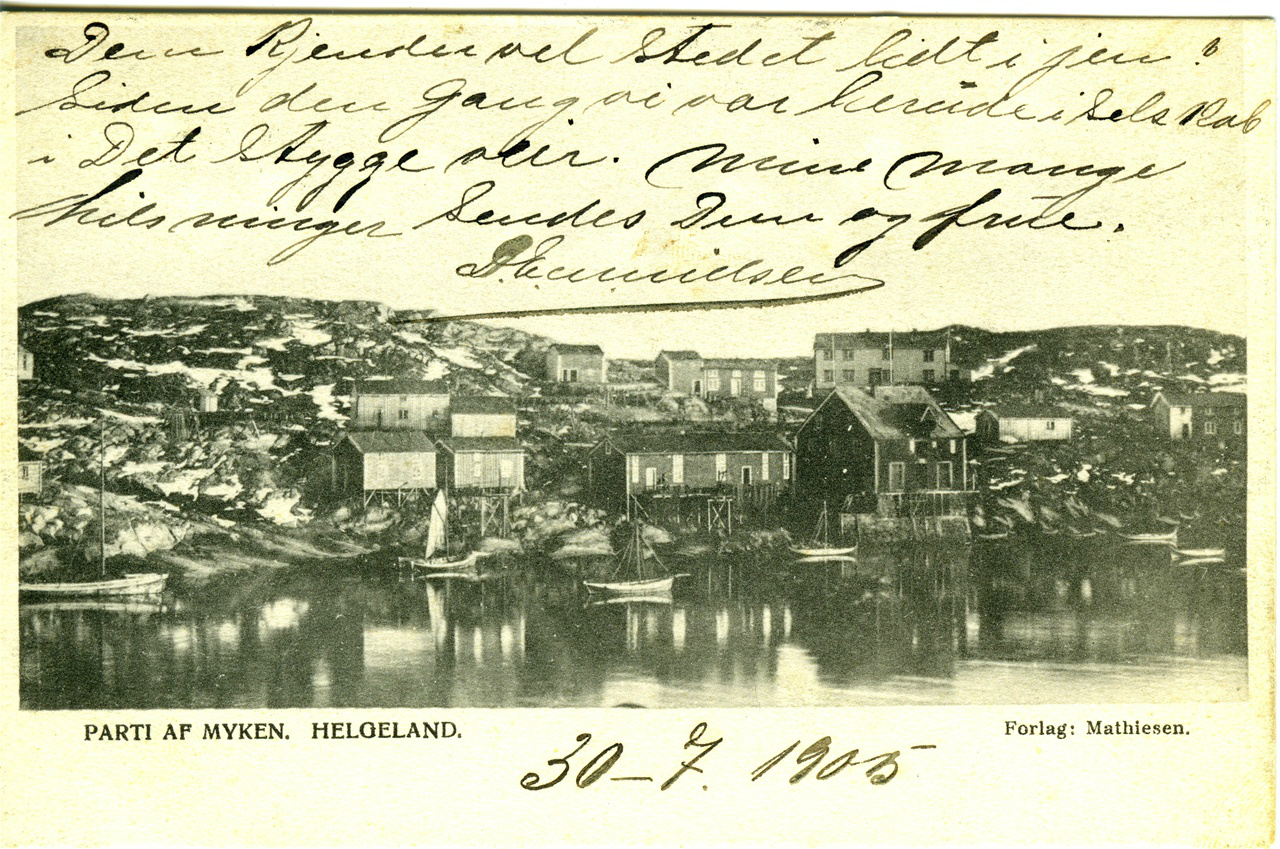 Dem Kjender vel Stedet lidt i jen ?
Siden den Gang vi var herude i Selskab
i Det Stygge veir. Mine mange
hilsninger Sendes Dem og frue.
PARTI AF MYKEN. HELGELAND.
Forlag: Mathiesen.
30–7. 1905